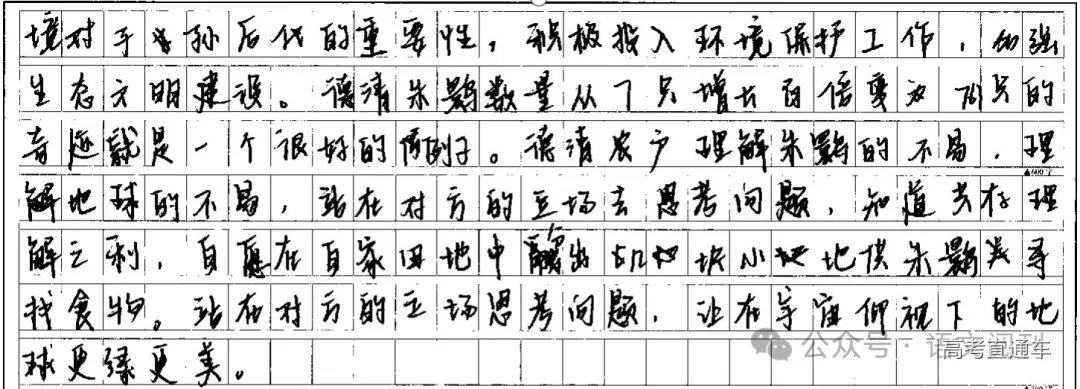 境对于子孙后代的重要性，积极投入环境保护工作，加强
生态文明建设。德清朱鹮数量从7只增长百倍变为 只的
奇迹就是一个很好的例子。德清农户理解朱鹮的不易，理
▲600字
解地球的不易，站在对方的立场去思考问题，知道共存理
解之利，自愿在自家田地中 出 块小 地供朱鹮类寻
找食物。站在对方的立场思考问题，让在宇宙仰视下的地
球更绿更美。
公众号·语文
高考直通车